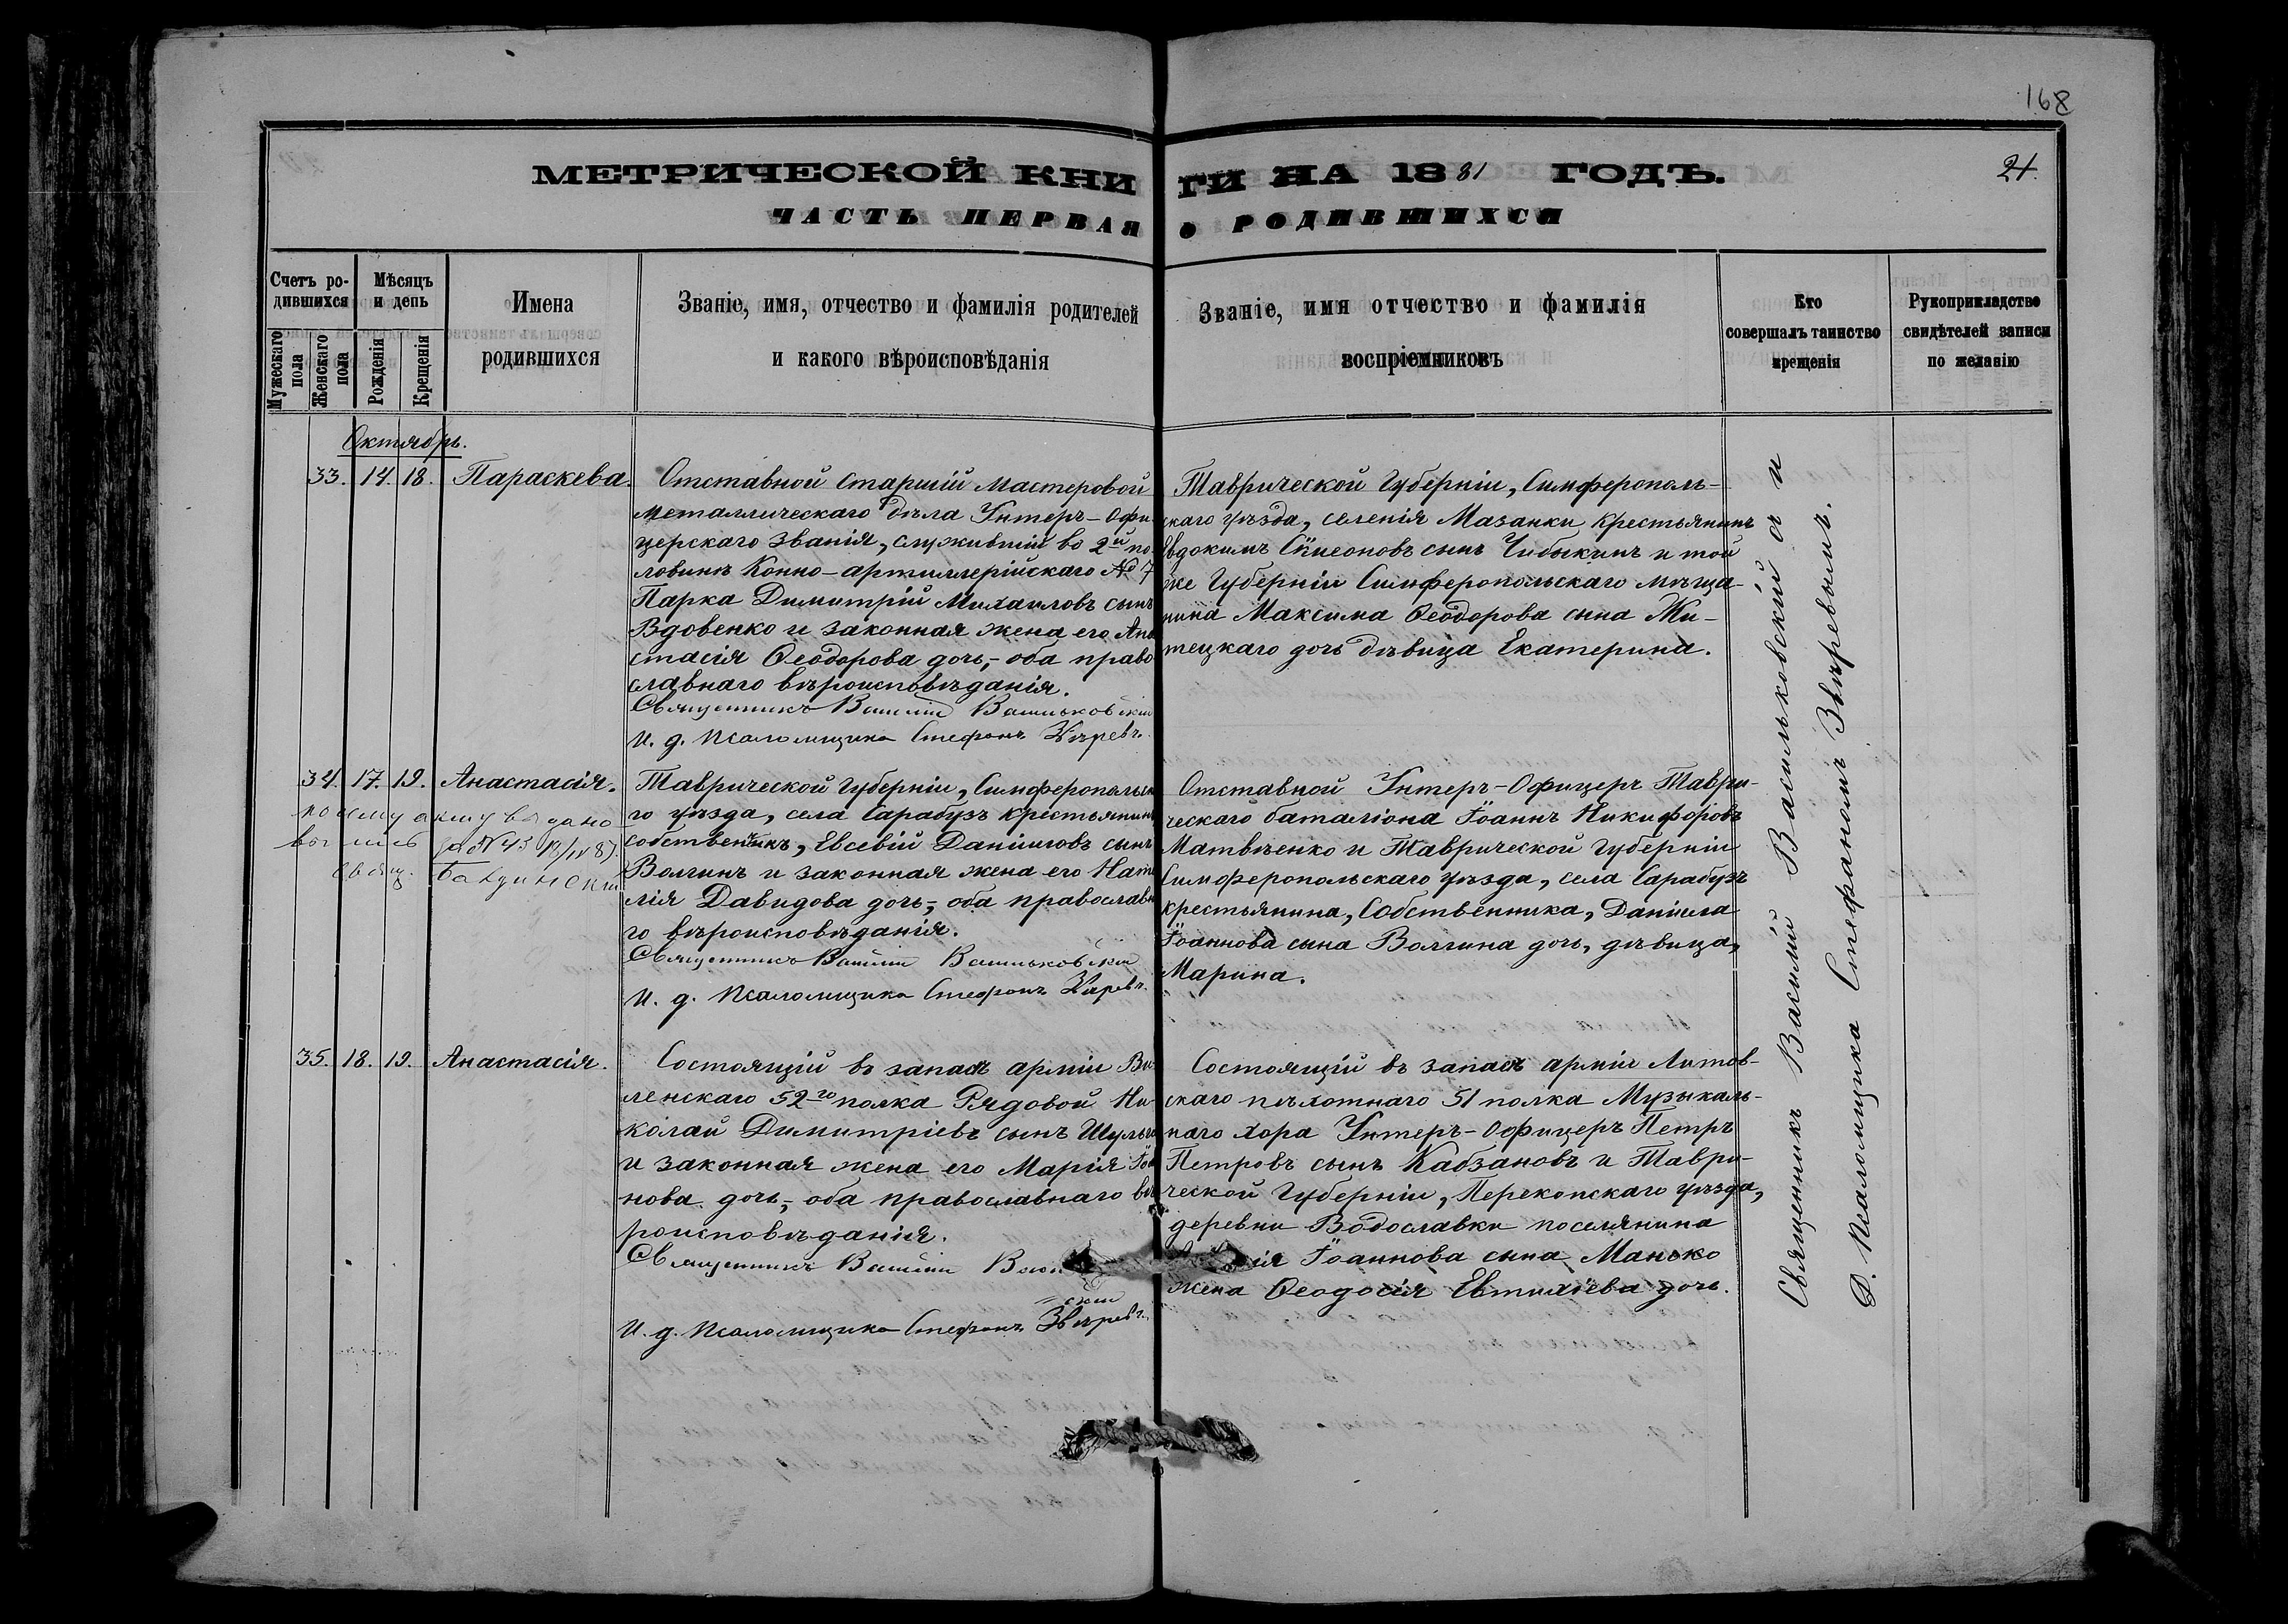 168
МЕТРИЧЕСКОЙ КНИГИ НА 1881 ГОДЪ.
21.
ЧАСТЬ ПЕРВАЯ О РОДИВШИХСЯ
Счетъ ро-
дившихся
Мѣсяцъ
и день
Мужескаго пола
Женскаго пола
Рожденія
Крещенія
Имена
родившихся
Званіе, имя, отчество и фамилія родителей
и какого вѣроисповѣданія
Званіе, имя отчество и фамилія
воспріемниковъ
Кто
совершалъ таинство
крещенія
Рукоприкладство
свидѣтелей записи
по желанію
Октябрь.
33. 14. 18. Параскева.
Отставной старшій мастеровой
металлическаго дѣла Унтеръ-Офи
церскаго званія, служившій во 2й по
ловинѣ Конно-артиллерійскаго № 7
Парка Димитрій Михаиловъ сынъ
Вдовенко и законная жена его Ана
стасія Ѳеодорова дочь,- оба право
славнаго вѣроисповѣданія.
Священникъ Василій Васильковскій
И. д. псаломщика Стефанъ Звѣревъ.
Таврической Губерніи, Симферополь-
скаго уѣзда, селенія Мазанки крестьянинъ
Евдокимъ Сѵмеоновъ сынъ Чибыкинъ и той
же Губерніи Симферопольскаго мѣща-
нина Максима Ѳеодорова сына Жи-
тецкаго дочь дѣвица Екатерина.
34. 17. 19. Анастасія.
по сему акту выдано
за № 43
свящ.
Таврической Губерніи, Симферопольска
го уѣзда, села Сарабузъ крестьянинъ
собственникъ, Евсевій Даніиловъ сынъ
Волгинъ и законная жена его Ната
лія Давидова дочь,- оба православна
го вѣроисповѣданія.
Священникъ Василій Васильковскій
И. д. псаломщика Стефанъ Звѣревъ.
Отставной Унтеръ-Офицеръ Таври-
ческаго баталіона Іоаннъ Никифоровъ
Матвѣенко и Таврической Губерніи
Симферопольскаго уѣзда, села Сарабузъ
крестьянина, Собственника, Даніила
Іоаннова сына Волгина дочь, дѣвица,
Марина.
35. 18. 19. Анастасія.
Состоящій въ запасѣ арміи Ви-
ленскаго 52го полка Рядовой Ни-
колай Димитріевъ сынъ
и законная жена его Марія Іоан
нова дочь,- оба православнаго вѣ
роисповѣданія.
Священникъ Василій Василь
скій
И. д. псаломщика Стефанъ Звѣревъ.
Состоящій въ запасѣ арміи Литов-
скаго пѣхотнаго 51 полка Музыкаль-
наго хора Унтеръ-Офицеръ Петръ
Петровъ сынъ Кабзановъ и Таври-
ческой Губерніи, Перекопскаго уѣзда,
деревни Водославки поселянина
ія Іоаннова сына Манько
жена Ѳеодосія Евтихіева дочь.
Священникъ Василій Васильковскій съ и
д. Псаломщика Стефаномъ Звѣревымъ.